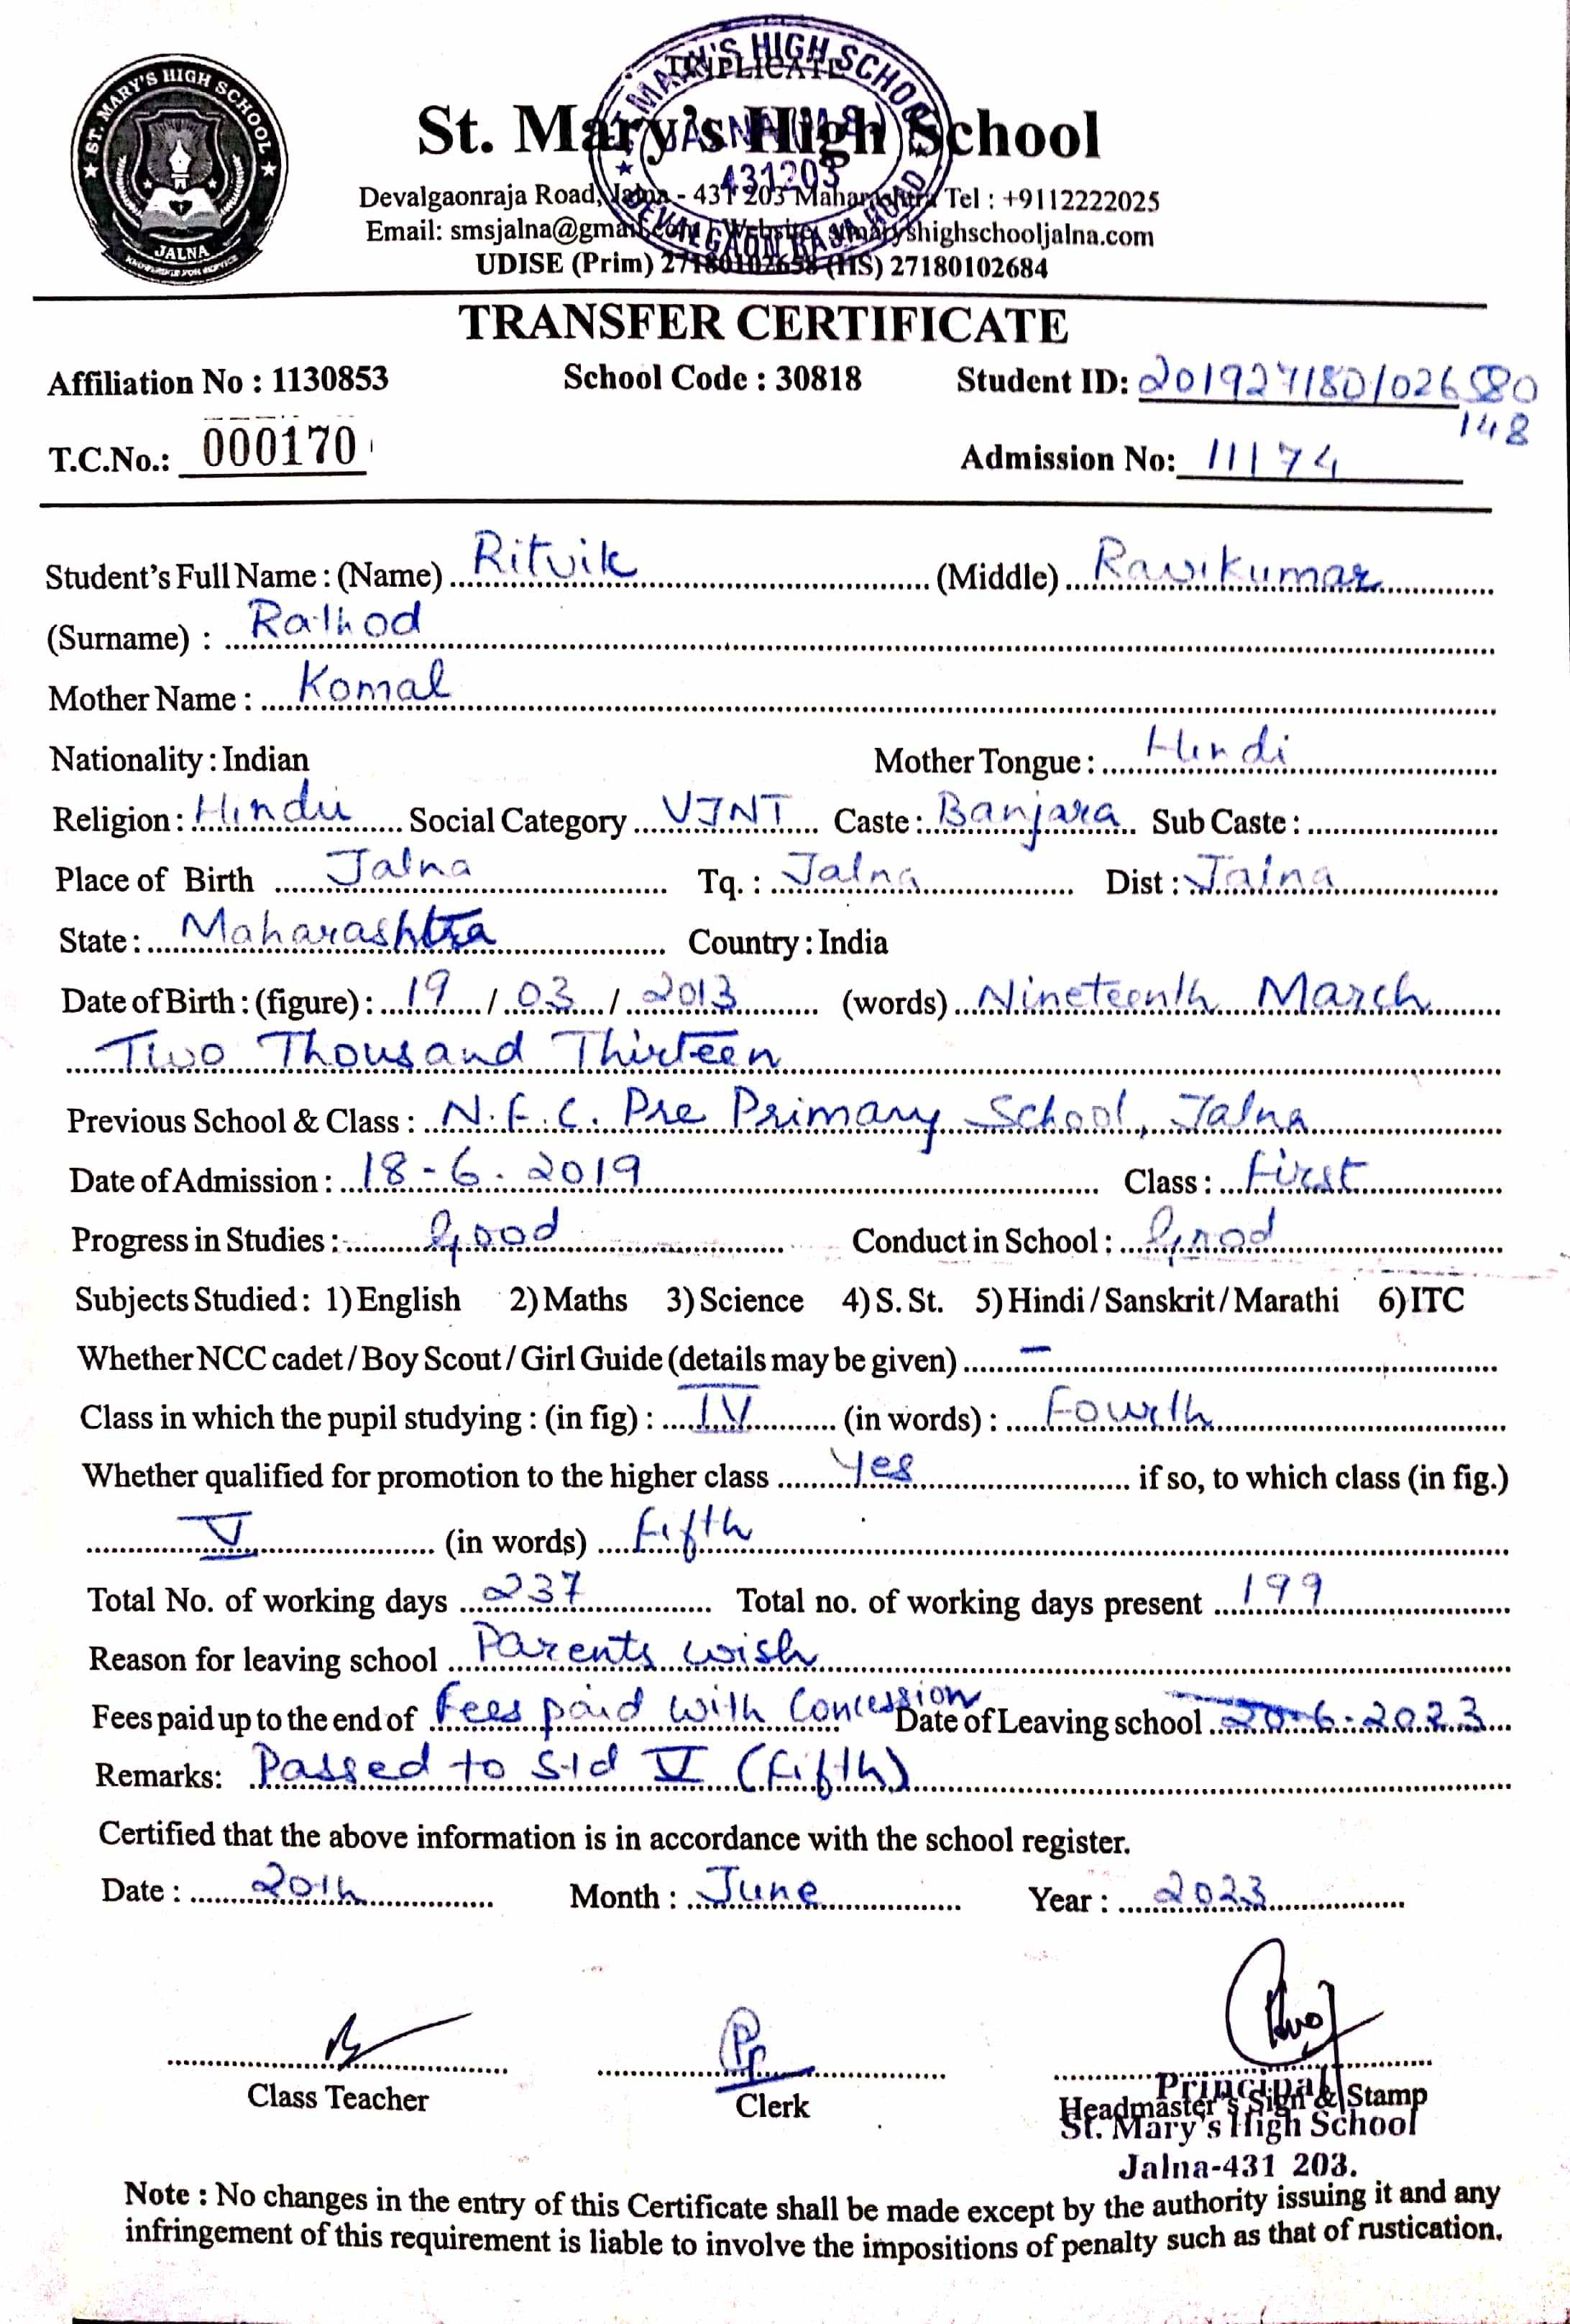 ST. MARY'S HIGH SCHOOL
JALNA
TRIPLICATE
ST. MARY'S HIGH SCHOOL
431203
DEVALGAON RAJA ROAD
St. Mary's High School
Devalgaonraja Road, Jalna - 431 203 Maharashtra Tel : +9112222025
Email: smsjalna@gmail.com | Website: smaryshighschooljalna.com
UDISE (Prim) 27180102658 (HS) 27180102684
TRANSFER CERTIFICATE
Affiliation No : 1130853 School Code : 30818 Student ID: 2019271801026580
148
T.C.No.: 000170 Admission No: 11174
Student's Full Name : (Name) Ritvik (Middle) Ravikumar
(Surname) : Rathod
Mother Name : Komal
Nationality : Indian Mother Tongue : Hindi
Religion : Hindu Social Category VJNT Caste : Banjara Sub Caste :
Place of Birth Jalna Tq. : Jalna Dist : Jalna
State : Maharashtra Country : India
Date of Birth : (figure) : 19 / 03 / 2013 (words) Nineteenth March
Two Thousand Thirteen
Previous School & Class : N.E.C. Pre Primary School, Jalna
Date of Admission : 18-6-2019 Class : First
Progress in Studies : Good Conduct in School : Good
Subjects Studied : 1) English 2) Maths 3) Science 4) S. St. 5) Hindi / Sanskrit / Marathi 6) ITC
Whether NCC cadet / Boy Scout / Girl Guide (details may be given) –
Class in which the pupil studying : (in fig) : IV (in words) : Fourth
Whether qualified for promotion to the higher class Yes if so, to which class (in fig.)
V (in words) Fifth
Total No. of working days 237 Total no. of working days present 199
Reason for leaving school Parents wish
Fees paid up to the end of Fees paid with Concession Date of Leaving school 20-6-2023
Remarks: Passed to Std V (Fifth)
Certified that the above information is in accordance with the school register.
Date : 20th Month : June Year : 2023
Class Teacher Clerk Headmaster's Sign & Stamp
Principal
St. Mary's High School
Jalna-431 203.
Note : No changes in the entry of this Certificate shall be made except by the authority issuing it and any
infringement of this requirement is liable to involve the impositions of penalty such as that of rustication.